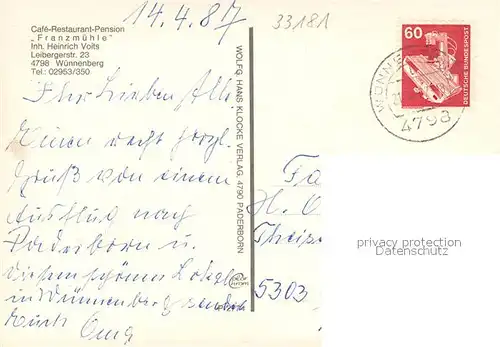 14.4.87
33181
Café-Restaurant-Pension
„Franzmühle"
Inh. Heinrich Voits
Leibergerstr. 23
4798 Wünnenberg
Tel.: 02953/350
Ihr Lieben Alle
Einen recht herzl.
Gruß von einem
Ausflug nach
Paderborn u.
diesem schönen Lokal
in Wünnenberg sendet
Euch
WOLFG. HANS KLOCKE VERLAG, 4790 PADERBORN
60
DEUTSCHE BUNDESPOST
4798
Fa
H. O
Theiss
5303
privacy protection
Datenschutz